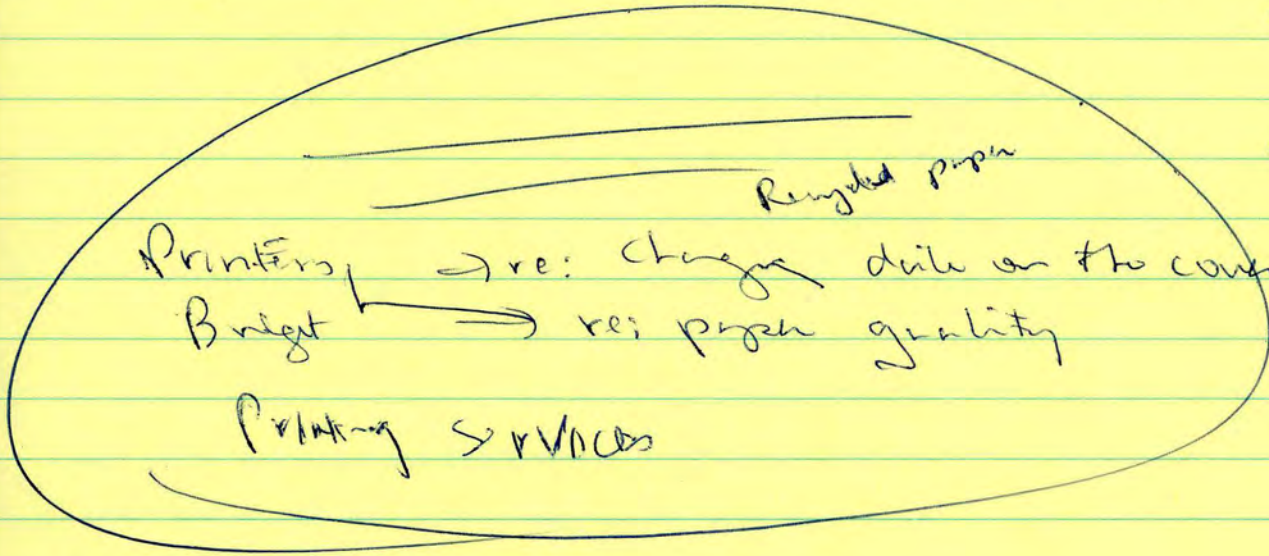 Recycled paper
Printers, → re: Changing date on the
Budget → re: paper quality
Printing Services